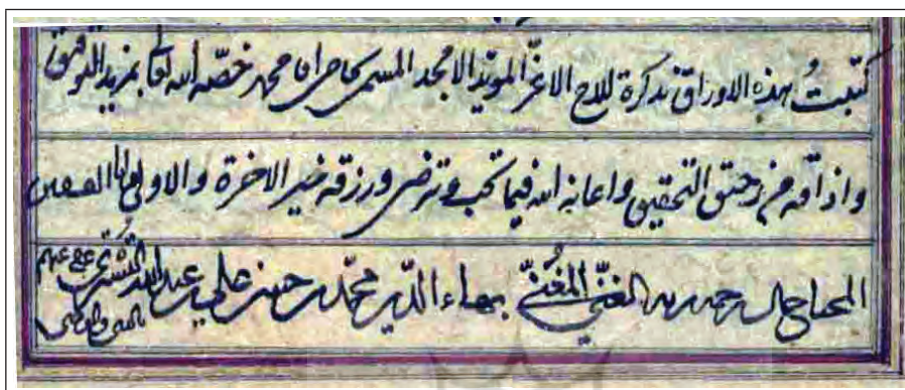 كتبت هذه الاوراق تذكرة للاخ الاعز المويد الامجد المسمى بحاجى اقا محمد خصه الله تعالى بمزيد التوفيق
واذاقه من رحيق التحقيق واعانه الله فيما تحب وترضى ورزقه خير الاخرة والاولى وانا الضعيف
المحتاج الى رحمة ربه الغنى المُغنى بهاء الدين محمد بن حسن على بن عبد الله التسترى عفى عنهم